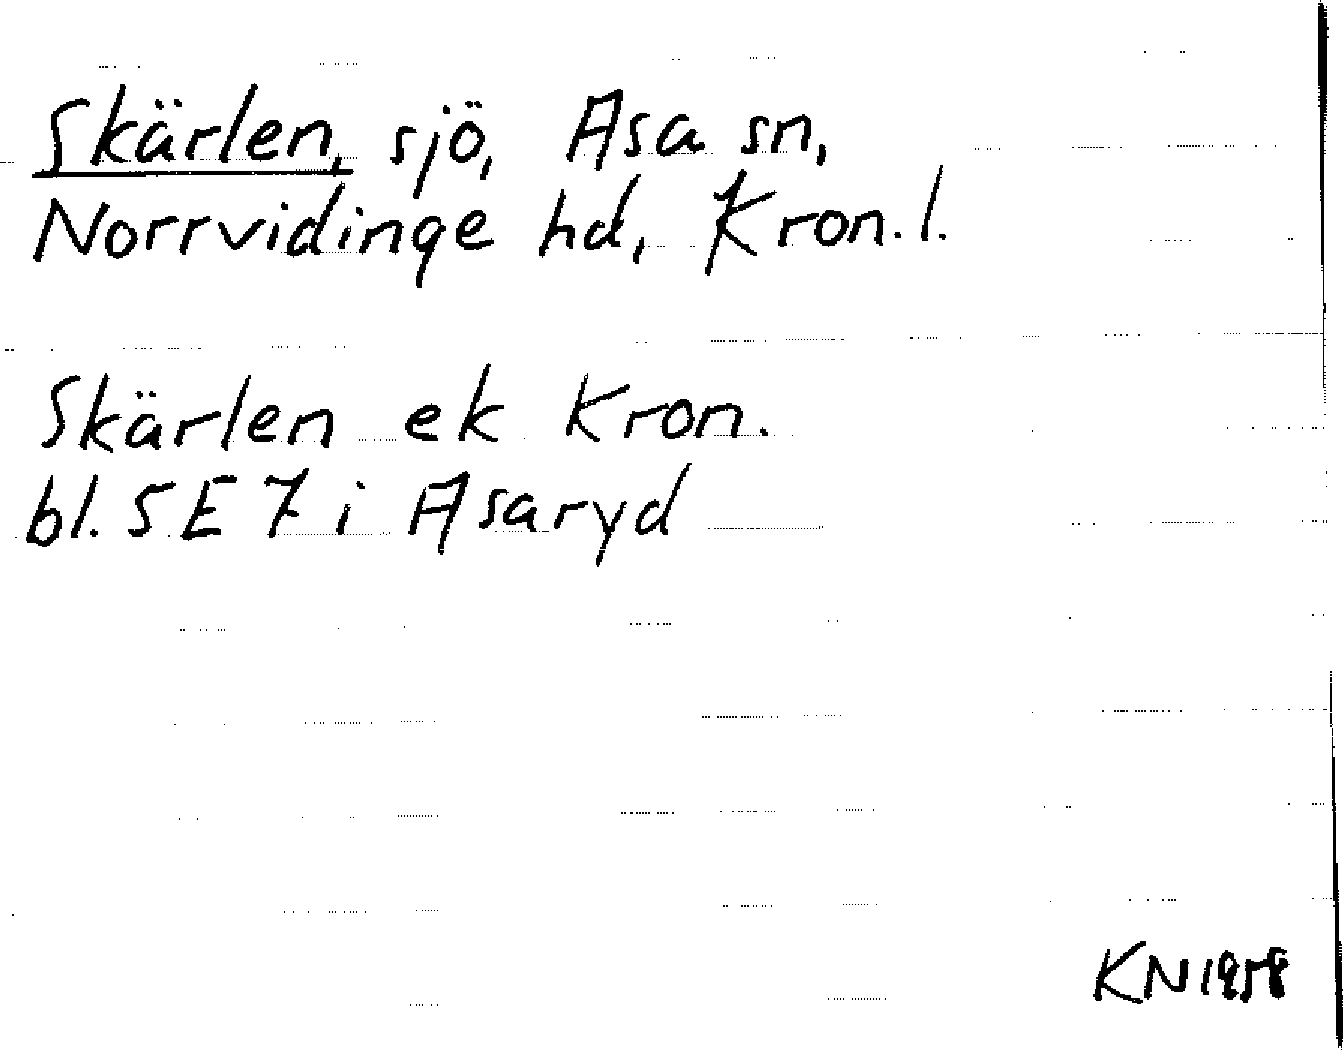 Skärlen, sjö, Asa sn,
Norrvidinge hd, Kron. l.
Skärlen ek Kron.
bl. 5 E 7 i Asaryd
KN 1958